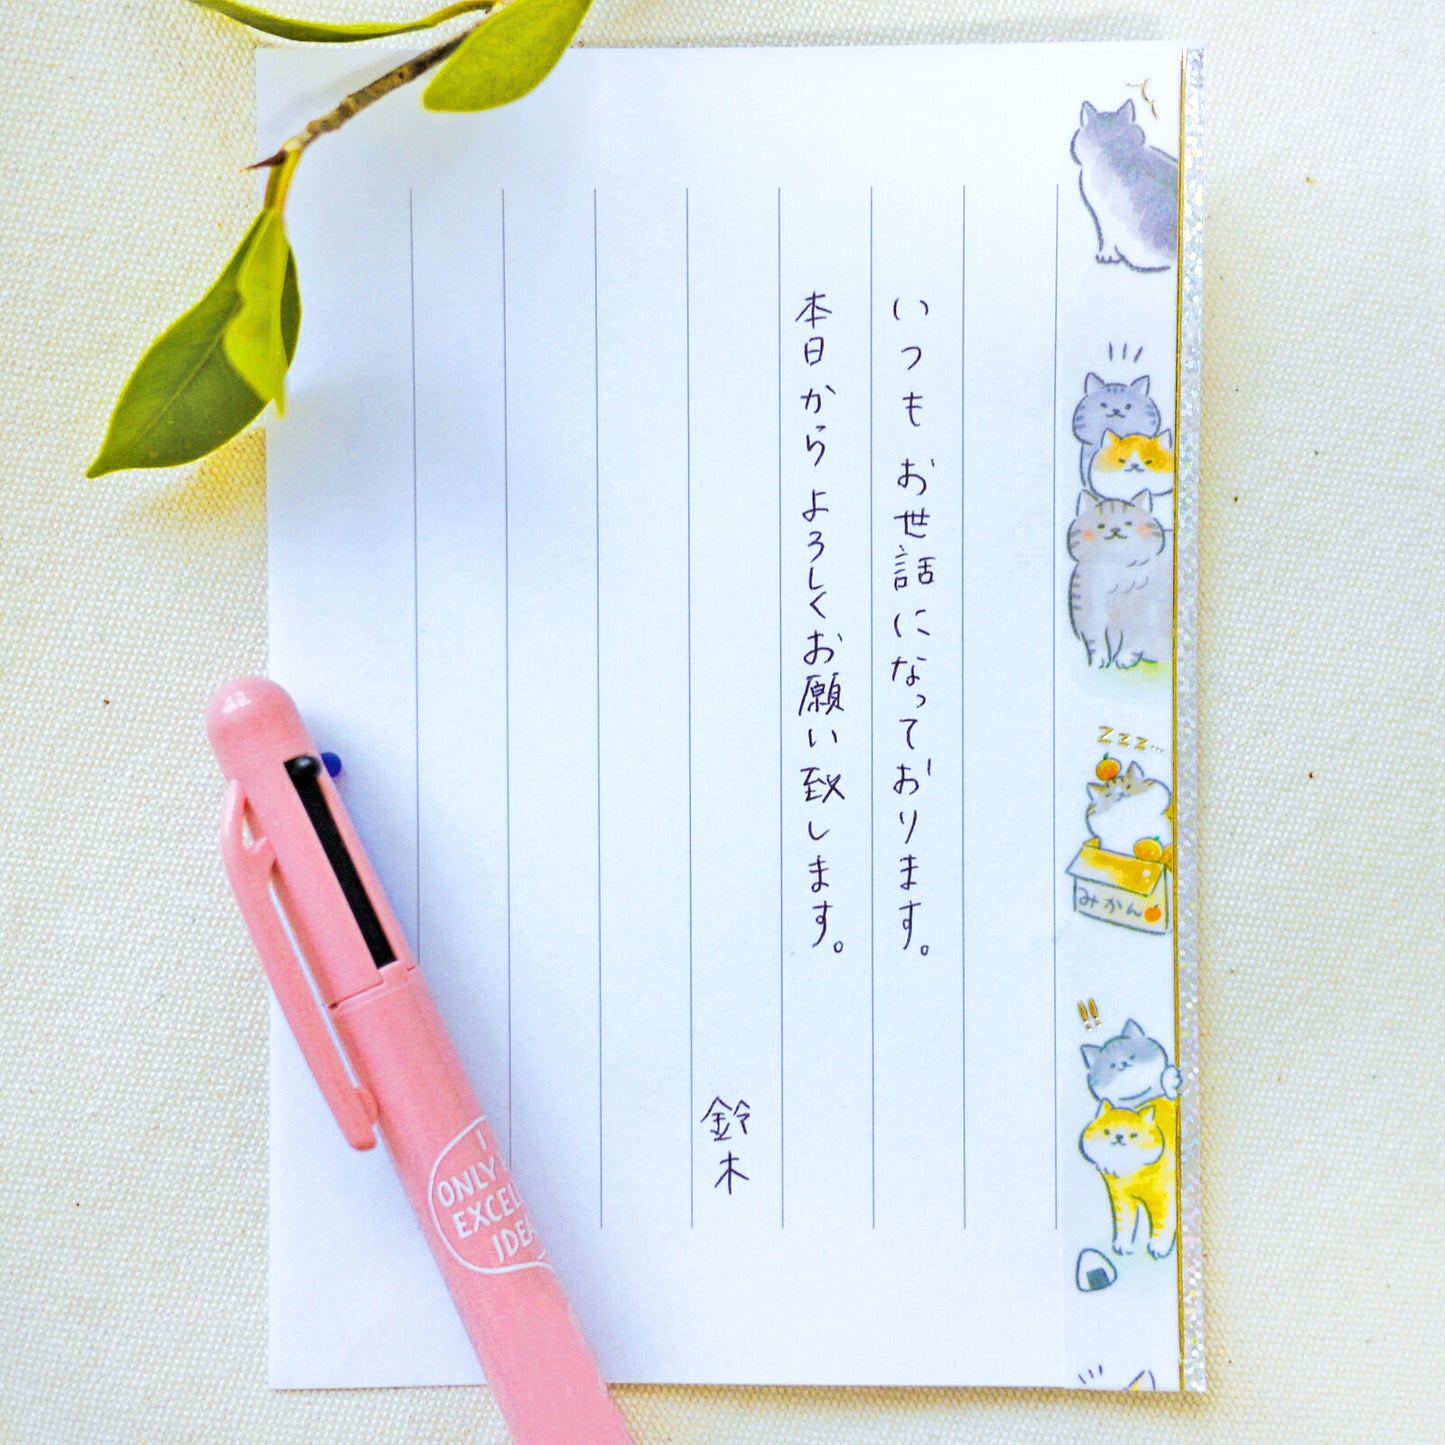 いつもお世話になっております。
本日からよろしくお願い致します。
鈴木
zzz…
みかん
!!
I
ONLY
EXCEL
IDEA